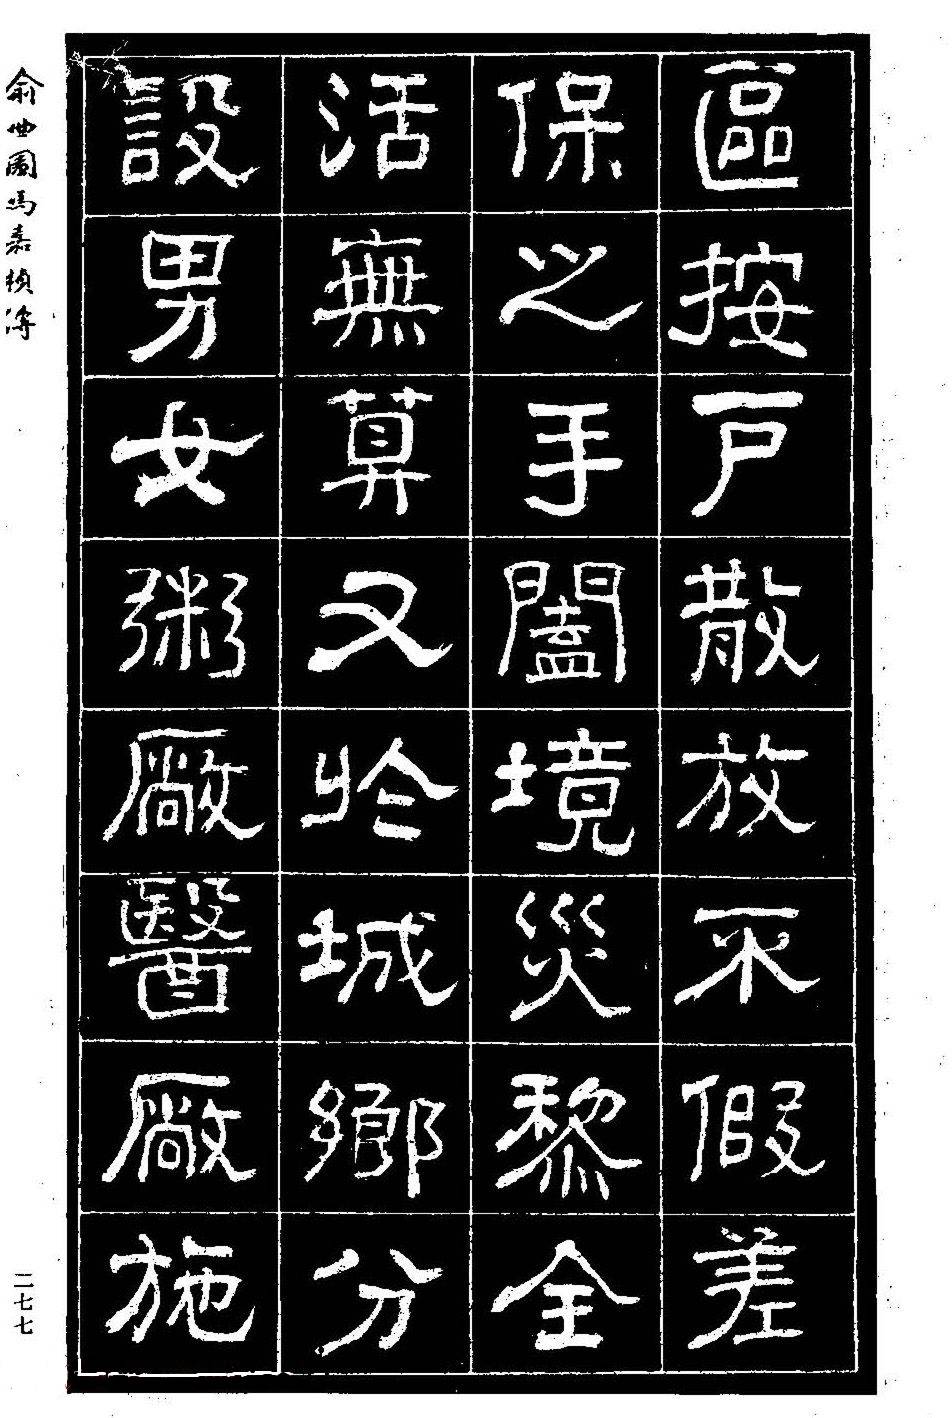 區按戶散放不假差
保之手闔境災黎全
活無算又於城鄉分
設男女粥廠醫廠施
俞曲園馮嘉楨傳
二七七